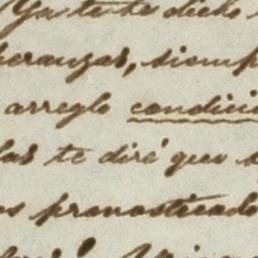 Ya te he dicho
peranzas, siemp
arreglo condici
las te diré que
os pronosticado